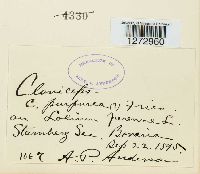 -4330-
1272960
HERBARIUM OF
Claviceps.
C. purpurea
on Lolium perenne L.
Starnberg See, Bavaria
Sep 22 1895
1067 A. P. Anderson